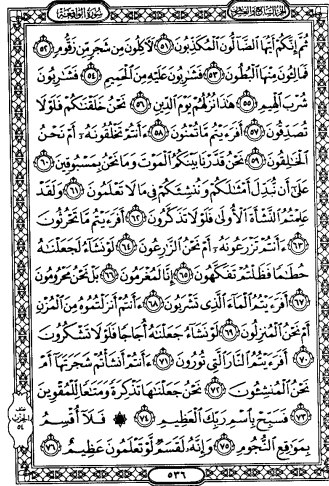 سورة الواقعة
الجزء السابع والعشرون
ثُمَّ إِنَّكُمْ أَيُّهَا ٱلضَّآلُّونَ ٱلْمُكَذِّبُونَ ٥١ لَأَكِلُونَ مِن شَجَرٍ مِّن زَقُّومٍ ٥٢
فَمَالِـُٔونَ مِنْهَا ٱلْبُطُونَ ٥٣ فَشَٰرِبُونَ عَلَيْهِ مِنَ ٱلْحَمِيمِ ٥٤ فَشَٰرِبُونَ
شُرْبَ ٱلْهِيمِ ٥٥ هَٰذَا نُزُلُهُمْ يَوْمَ ٱلدِّينِ ٥٦ نَحْنُ خَلَقْنَٰكُمْ فَلَوْلَا
تُصَدِّقُونَ ٥٧ أَفَرَءَيْتُم مَّا تُمْنُونَ ٥٨ ءَأَنتُمْ تَخْلُقُونَهُۥٓ أَمْ نَحْنُ
ٱلْخَٰلِقُونَ ٥٩ نَحْنُ قَدَّرْنَا بَيْنَكُمُ ٱلْمَوْتَ وَمَا نَحْنُ بِمَسْبُوقِينَ ٦٠
عَلَىٰٓ أَن نُّبَدِّلَ أَمْثَٰلَكُمْ وَنُنشِئَكُمْ فِى مَا لَا تَعْلَمُونَ ٦١ وَلَقَدْ
عَلِمْتُمُ ٱلنَّشْأَةَ ٱلْأُولَىٰ فَلَوْلَا تَذَكَّرُونَ ٦٢ أَفَرَءَيْتُم مَّا تَحْرُثُونَ
٦٣ ءَأَنتُمْ تَزْرَعُونَهُۥٓ أَمْ نَحْنُ ٱلزَّٰرِعُونَ ٦٤ لَوْ نَشَآءُ لَجَعَلْنَٰهُ
حُطَٰمًا فَظَلْتُمْ تَفَكَّهُونَ ٦٥ إِنَّا لَمُغْرَمُونَ ٦٦ بَلْ نَحْنُ مَحْرُومُونَ
٦٧ أَفَرَءَيْتُمُ ٱلْمَآءَ ٱلَّذِى تَشْرَبُونَ ٦٨ ءَأَنتُمْ أَنزَلْتُمُوهُ مِنَ ٱلْمُزْنِ
أَمْ نَحْنُ ٱلْمُنزِلُونَ ٦٩ لَوْ نَشَآءُ جَعَلْنَٰهُ أُجَاجًا فَلَوْلَا تَشْكُرُونَ
٧٠ أَفَرَءَيْتُمُ ٱلنَّارَ ٱلَّتِى تُورُونَ ٧١ ءَأَنتُمْ أَنشَأْتُمْ شَجَرَتَهَآ أَمْ
نَحْنُ ٱلْمُنشِـُٔونَ ٧٢ نَحْنُ جَعَلْنَٰهَا تَذْكِرَةً وَمَتَٰعًا لِّلْمُقْوِينَ
٧٣ فَسَبِّحْ بِٱسْمِ رَبِّكَ ٱلْعَظِيمِ ٧٤ ۞ فَلَآ أُقْسِمُ
بِمَوَٰقِعِ ٱلنُّجُومِ ٧٥ وَإِنَّهُۥ لَقَسَمٌ لَّوْ تَعْلَمُونَ عَظِيمٌ ٧٦
٥٣٦